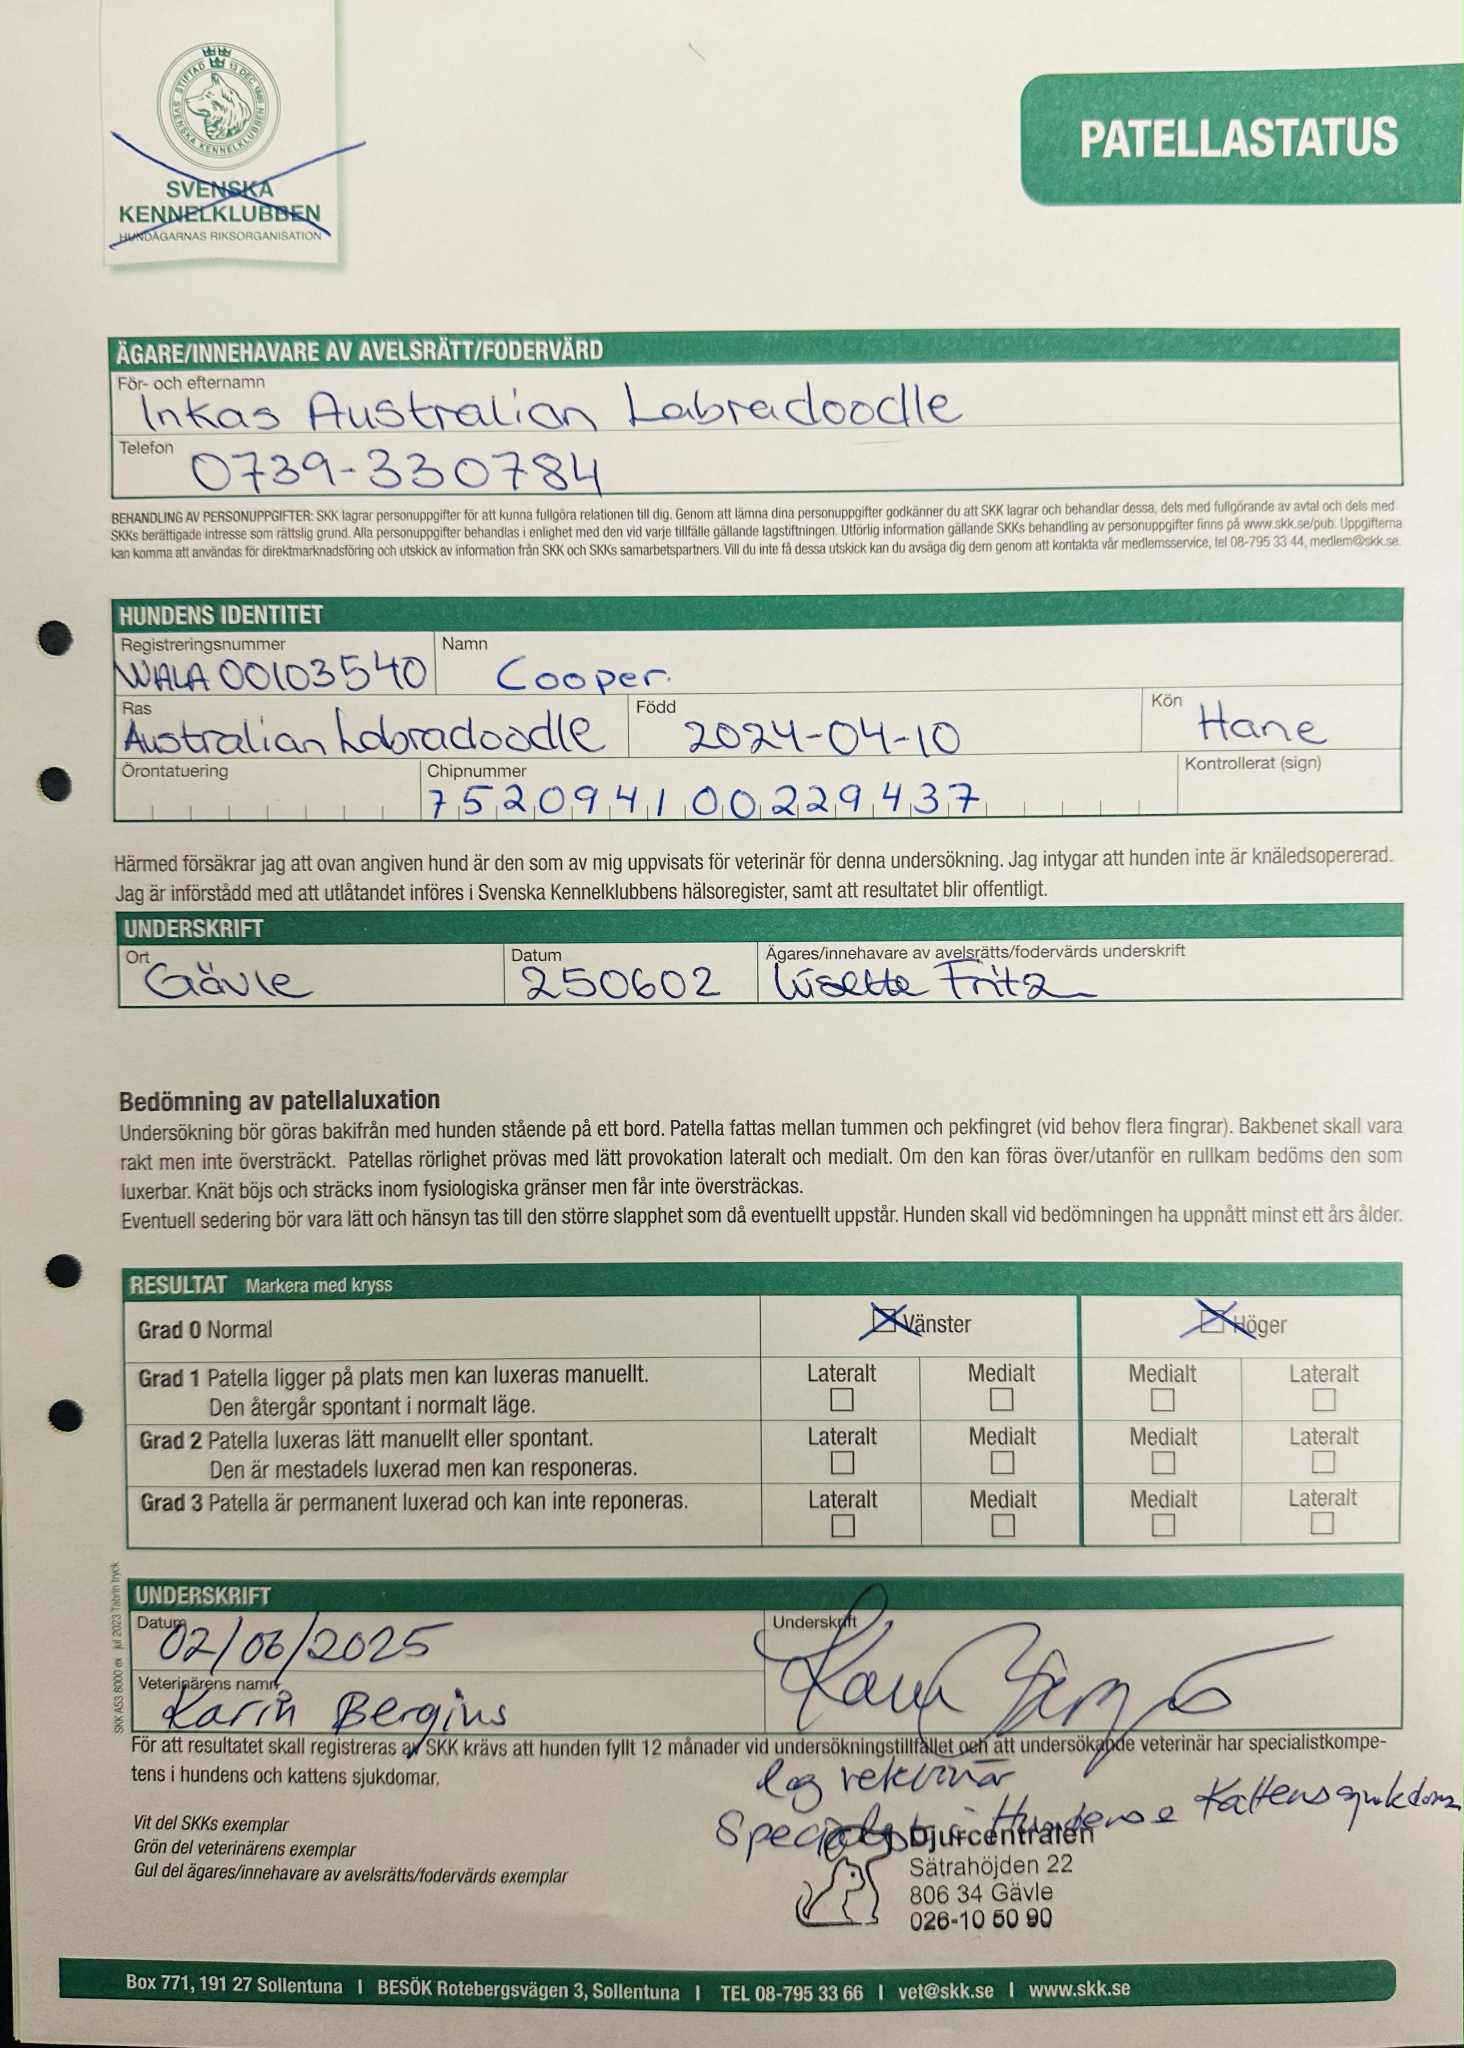 SVENSKA KENNELKLUBBEN
STIFTAD 13 DEC. 1889
SVENSKA
KENNELKLUBBEN
HUNDÄGARNAS RIKSORGANISATION
PATELLASTATUS
ÄGARE/INNEHAVARE AV AVELSRÄTT/FODERVÄRD
För- och efternamn
Inkas Australian Labradoodle
Telefon
0739-330784
BEHANDLING AV PERSONUPPGIFTER: SKK lagrar personuppgifter för att kunna fullgöra relationen till dig. Genom att lämna dina personuppgifter godkänner du att SKK lagrar och behandlar dessa, dels med fullgörande av avtal och dels med
SKKs berättigade intresse som rättslig grund. Alla personuppgifter behandlas i enlighet med den vid varje tillfälle gällande lagstiftningen. Utförlig information gällande SKKs behandling av personuppgifter finns på www.skk.se/pub. Uppgifterna
kan komma att användas för direktmarknadsföring och utskick av information från SKK och SKKs samarbetspartners. Vill du inte få dessa utskick kan du avsäga dig dem genom att kontakta vår medlemsservice, tel 08-795 33 44, medlem@skk.se.
HUNDENS IDENTITET
Registreringsnummer Namn
WALA 00103540 Cooper.
Ras Född Kön
Australian Labradoodle 2024-04-10 Hane
Örontatuering Chipnummer Kontrollerat (sign)
752094100229437
Härmed försäkrar jag att ovan angiven hund är den som av mig uppvisats för veterinär för denna undersökning. Jag intygar att hunden inte är knäledsopererad.
Jag är införstådd med att utlåtandet införes i Svenska Kennelklubbens hälsoregister, samt att resultatet blir offentligt.
UNDERSKRIFT
Ort Datum Ägares/innehavare av avelsrätts/fodervärds underskrift
Gävle 250602 Lisette Fritz
Bedömning av patellaluxation
Undersökning bör göras bakifrån med hunden stående på ett bord. Patella fattas mellan tummen och pekfingret (vid behov flera fingrar). Bakbenet skall vara
rakt men inte översträckt. Patellas rörlighet prövas med lätt provokation lateralt och medialt. Om den kan föras över/utanför en rullkam bedöms den som
luxerbar. Knät böjs och sträcks inom fysiologiska gränser men får inte översträckas.
Eventuell sedering bör vara lätt och hänsyn tas till den större slapphet som då eventuellt uppstår. Hunden skall vid bedömningen ha uppnått minst ett års ålder.
RESULTAT Markera med kryss
Grad 0 Normal Vänster Höger
Grad 1 Patella ligger på plats men kan luxeras manuellt. Lateralt Medialt Medialt Lateralt
Den återgår spontant i normalt läge.
Grad 2 Patella luxeras lätt manuellt eller spontant. Lateralt Medialt Medialt Lateralt
Den är mestadels luxerad men kan responeras.
Grad 3 Patella är permanent luxerad och kan inte reponeras. Lateralt Medialt Medialt Lateralt
SKK A53 8000 ex jul 2023 Tabrin tryck
UNDERSKRIFT
Datum Underskrift
02/06/2025
Veterinärens namn
Karin Bergius
För att resultatet skall registreras av SKK krävs att hunden fyllt 12 månader vid undersökningstillfället och att undersökande veterinär har specialistkompe-
tens i hundens och kattens sjukdomar.
leg veterinär
Specialist i Hundens
Kattens sjukdomar
Vit del SKKs exemplar
Grön del veterinärens exemplar
Gul del ägares/innehavare av avelsrätts/fodervärds exemplar
Djurcentralen
Sätrahöjden 22
806 34 Gävle
026-10 50 90
Box 771, 191 27 Sollentuna I BESÖK Rotebergsvägen 3, Sollentuna I TEL 08-795 33 66 I vet@skk.se I www.skk.se